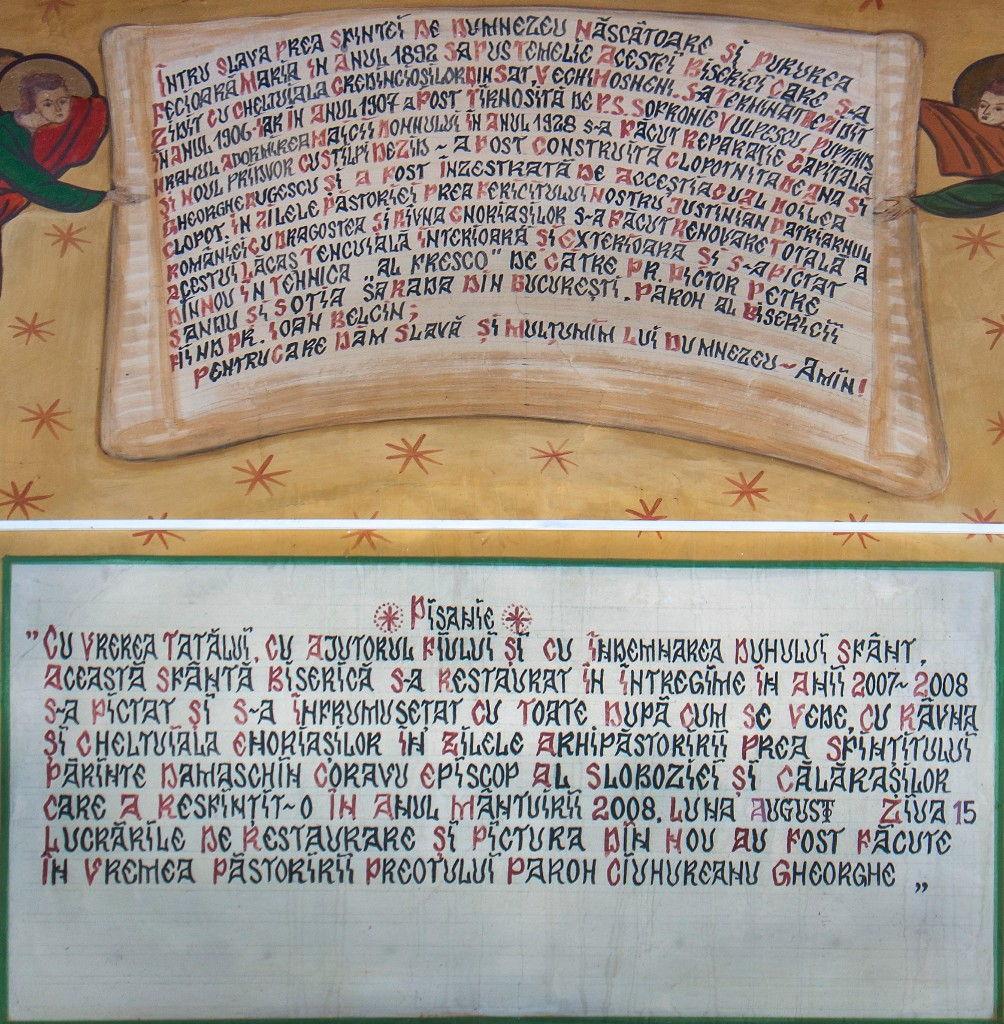 ÎNTRU SLAVA PREA SFINTEI DE DUMNEZEU NĂSCĂTOARE ȘI PURUREA
FECIOARĂ MARIA ÎN ANUL 1892 S-A PUS TEMELIE ACESTEI BISERICI CARE S-A
ZIDIT CU CHELTUIALA CREDINCIOȘILOR DIN SAT. VECHI MOSNENI. S-A TERMINAT DE ZIDIT
ÎN ANUL 1906. IAR ÎN ANUL 1907 A FOST TÎRNOSITĂ DE P.S. SOFRONIE VULPESCU, PURTÎND
HRAMUL ADORMIREA MAICII DOMNULUI ÎN ANUL 1928 S-A FĂCUT REPARAȚIE CAPITALĂ
ȘI NOUL PRIDVOR CU STÎLPI DE ZID ~ A FOST CONSTRUITĂ CLOPOTNIȚA DE ANA ȘI
GHEORGHE DUGESCU ȘI A FOST ÎNZESTRATĂ DE ACEȘTIA CU AL DOILEA
CLOPOT. ÎN ZILELE PĂSTORIEI PREA FERICITULUI NOSTRU JUSTINIAN PATRIARHUL
ROMÂNIEI CU DRAGOSTEA ȘI RÎVNA ENORIAȘILOR S-A FĂCUT RENOVARE TOTALĂ A
ACESTUI LĂCAȘ TENCUIALĂ INTERIOARĂ ȘI EXTERIOARĂ ȘI S-A PICTAT
DIN NOU ÎN TEHNICA „AL FRESCO” DE CĂTRE PR. PICTOR PETRE
SANDU ȘI SOȚIA SARADA DIN BUCUREȘTI. PAROH AL BISERICII
FIIND PR. IOAN BELCIN;
PENTRU CARE DĂM SLAVĂ ȘI MULȚUMIM LUI DUMNEZEU ~ AMIN!
PISANIE
”CU VREREA TATĂLUI, CU AJUTORUL FIULUI ȘI CU ÎNDEMNAREA DUHULUI SFÂNT,
ACEASTĂ SFÂNTĂ BISERICĂ S-A RESTAURAT ÎN ÎNTREGIME ÎN ANII 2007~2008
S-A PICTAT ȘI S-A ÎNFRUMUSEȚAT CU TOATE DUPĂ CUM SE VEDE, CU RÂVNA
ȘI CHELTUIALA ENORIAȘILOR ÎN ZILELE ARHIPĂSTORIRII PREA SFINȚITULUI
PĂRINTE DAMASCHIN CORAVU EPISCOP AL SLOBOZIEI ȘI CĂLĂRAȘILOR
CARE A RESFINȚIT~O ÎN ANUL MÂNTUIRII 2008. LUNA AUGUST ZIUA 15
LUCRĂRILE DE RESTAURARE ȘI PICTURA DIN NOU AU FOST FĂCUTE
ÎN VREMEA PĂSTORIRII PREOTULUI PAROH CIUHUREANU GHEORGHE „